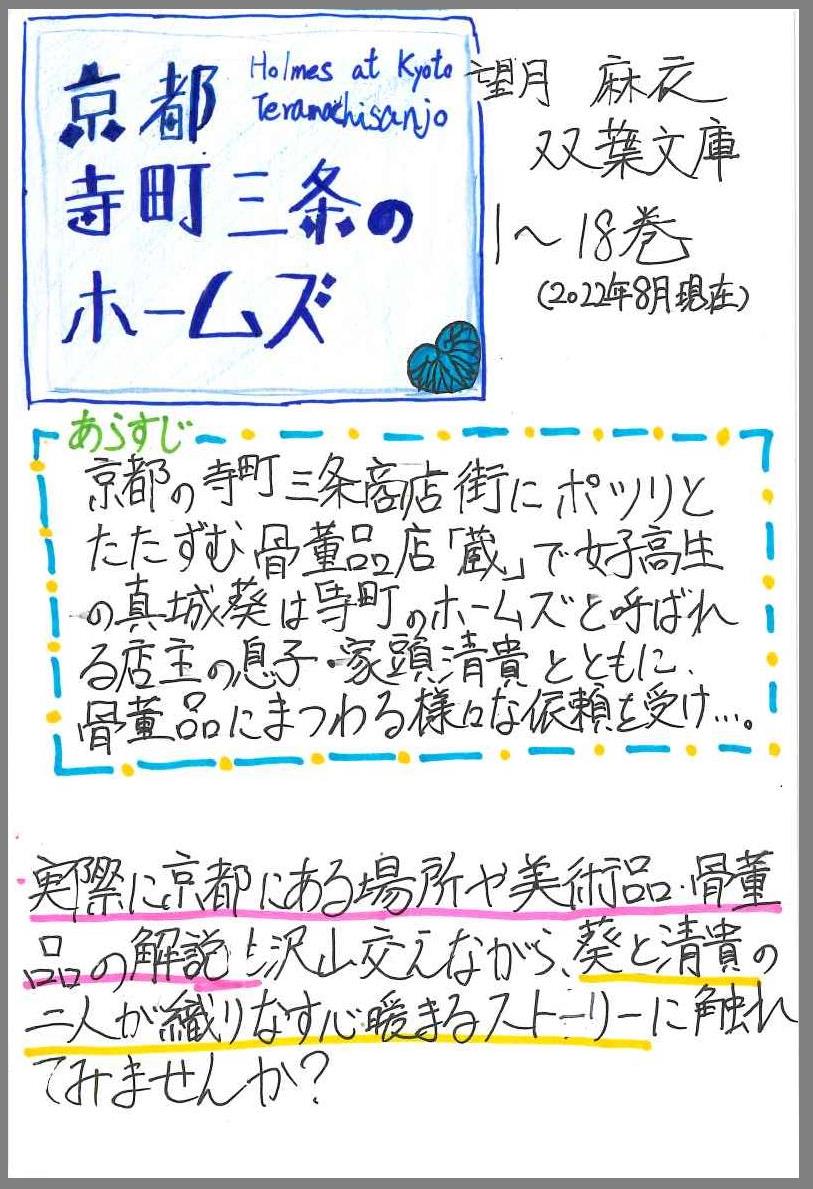 京都
寺町三条の
ホームズ
Holmes at Kyoto
Teramachisanjo
望月 麻衣
双葉文庫
1〜18巻
(2022年8月現在)
あらすじ
京都の寺町三条商店街にポツリと
たたずむ骨董品店「蔵」で女子高生
の真城葵は寺町のホームズと呼ばれ
る店主の息子・家頭清貴とともに、
骨董品にまつわる様々な依頼を受け…。
実際に京都にある場所や美術品・骨董
品の解説も沢山交えながら、葵と清貴の
二人が織りなす心暖まるストーリーに触れ
てみませんか?